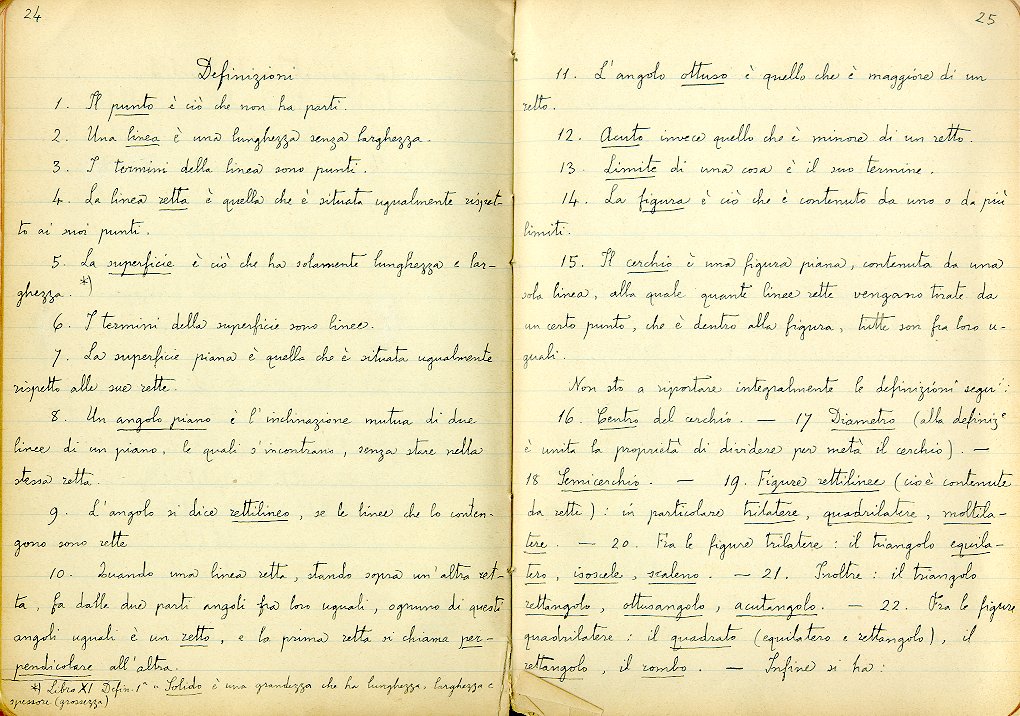 24
Definizioni
1. Il punto è ciò che non ha parti.
2. Una linea è una lunghezza senza larghezza.
3. I termini della linea sono punti.
4. La linea retta è quella che è situata ugualmente rispet-
to ai suoi punti.
5. La superficie è ciò che ha solamente lunghezza e lar-
ghezza. *)
6. I termini della superficie sono linee.
7. La superficie piana è quella che è situata ugualmente
rispetto alle sue rette.
8. Un angolo piano è l'inclinazione mutua di due
linee di un piano, le quali s'incontrano, senza stare nella
stessa retta.
9. L'angolo si dice rettilineo, se le linee che lo conten-
gono sono rette
10. Quando una linea retta, stando sopra un'altra ret-
ta, fa dalle due parti angoli fra loro uguali, ognuno di questi
angoli uguali è un retto, e la prima retta si chiama per-
pendicolare all'altra.
*) Libro XI Defin. 1ª "Solido è una grandezza che ha lunghezza, larghezza e
spessore (grossezza)
25
11. L'angolo ottuso è quello che è maggiore di un
retto.
12. Acuto invece quello che è minore di un retto.
13. Limite di una cosa è il suo termine.
14. La figura è ciò che è contenuto da uno o da più
limiti.
15. Il cerchio è una figura piana, contenuta da una
sola linea, alla quale quante linee rette vengano tirate da
un certo punto, che è dentro alla figura, tutte son fra loro u-
guali.
Non sto a riportare integralmente le definizioni segu.ⁱ:
16. Centro del cerchio. — 17 Diametro (alla definizᵉ
è unita la proprietà di dividere per metà il cerchio). —
18 Semicerchio. — 19. Figure rettilinee (cioè contenute
da rette): in particolare trilatere, quadrilatere, moltila-
tere. — 20. Fra le figure trilatere: il triangolo equila-
tero, isoscele, scaleno. — 21. Inoltre: il triangolo
rettangolo, ottusangolo, acutangolo. — 22. Fra le figure
quadrilatere: il quadrato (equilatero e rettangolo), il
rettangolo, il rombo. — Infine si ha: